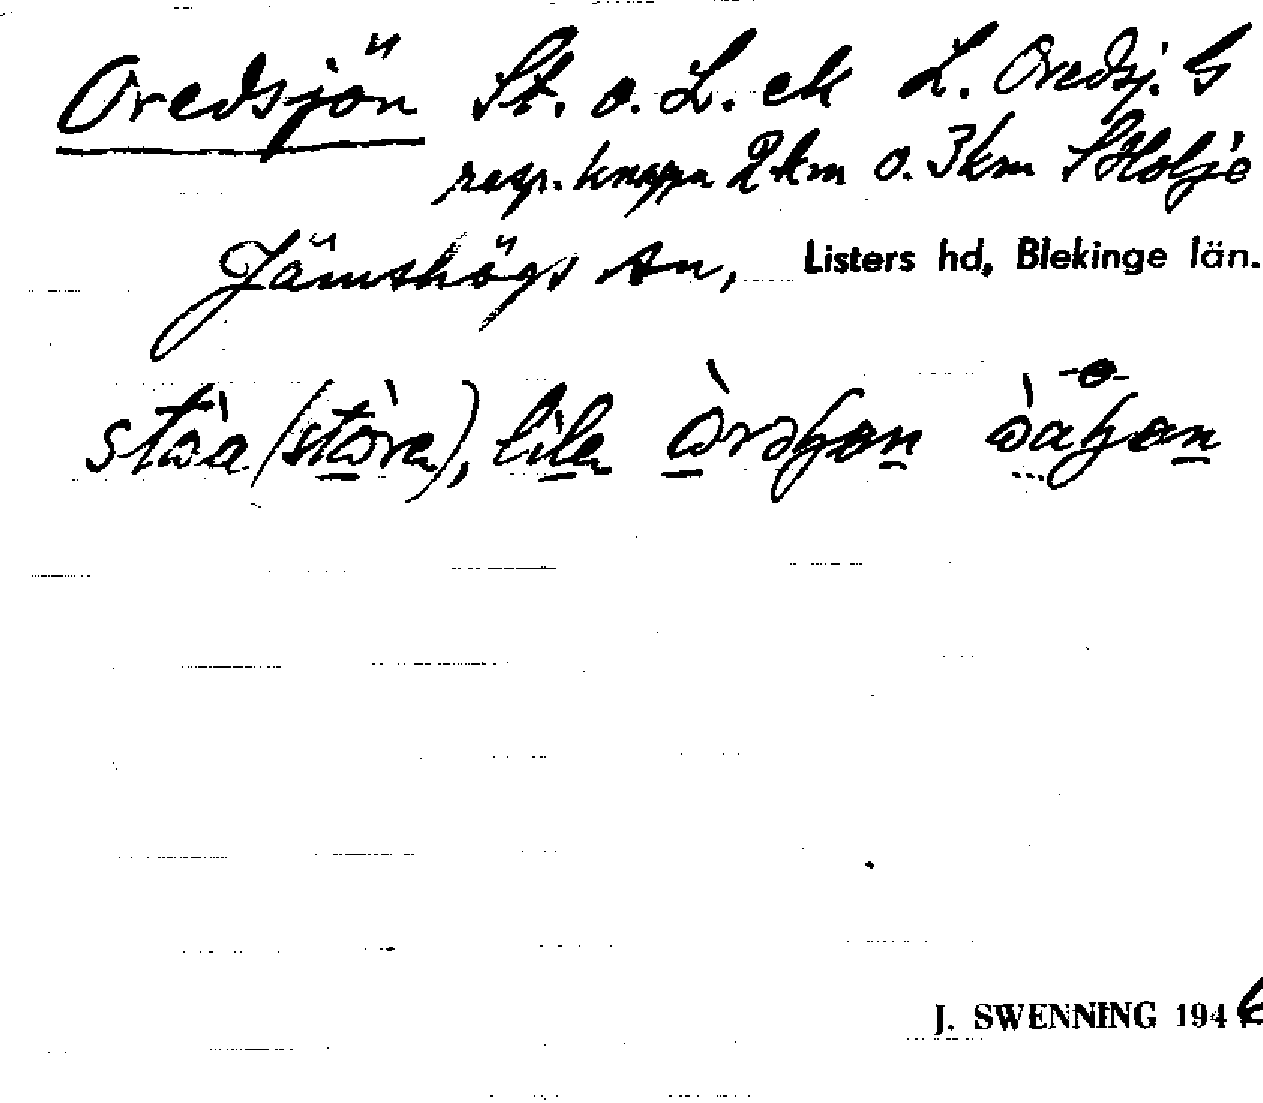 Oredsjön St. o. L. ek L. Oredsj. G
resp. knappa 2 km o. 3 km S Holje
Jämshögs sn, Listers hd, Blekinge län.
(stòra), lila
J. SWENNING 1946